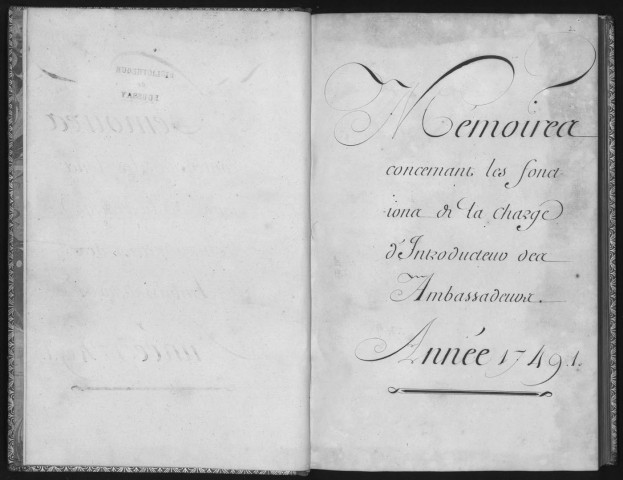 Mémoires
concernant les fonct
ions de la charge
d'Introducteur des
Ambassadeurs.
Année 1749.